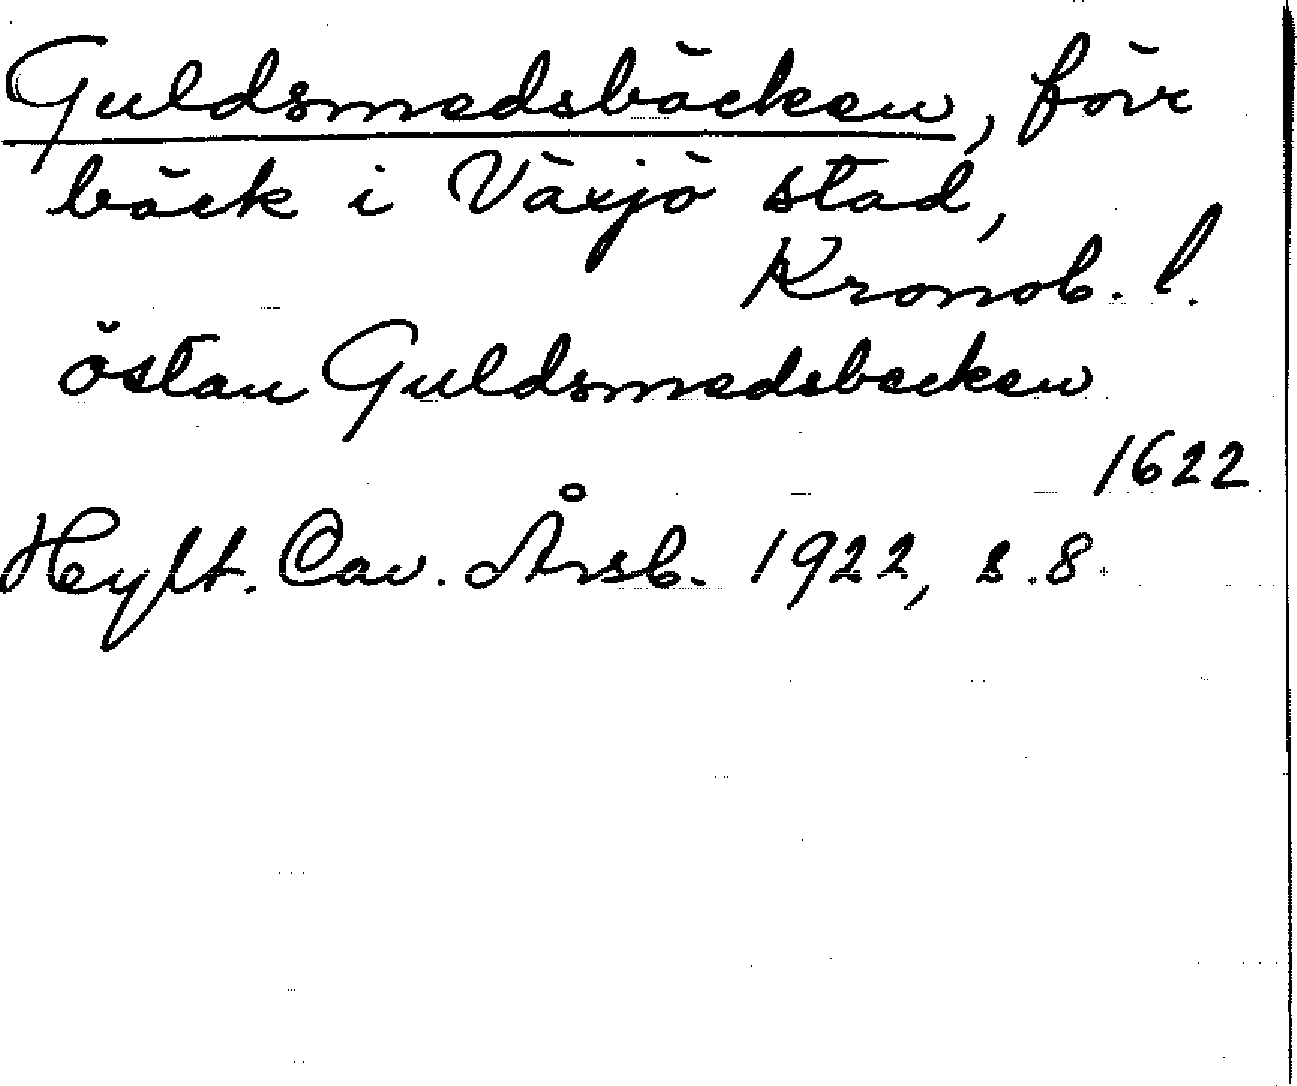 Guldsmedsbäcken, förr
bäck i Växjö stad,
Kronob. l.
östan Guldsmedsbecken
1622
Hylt. Cav. Årsb. 1922, s. 8.